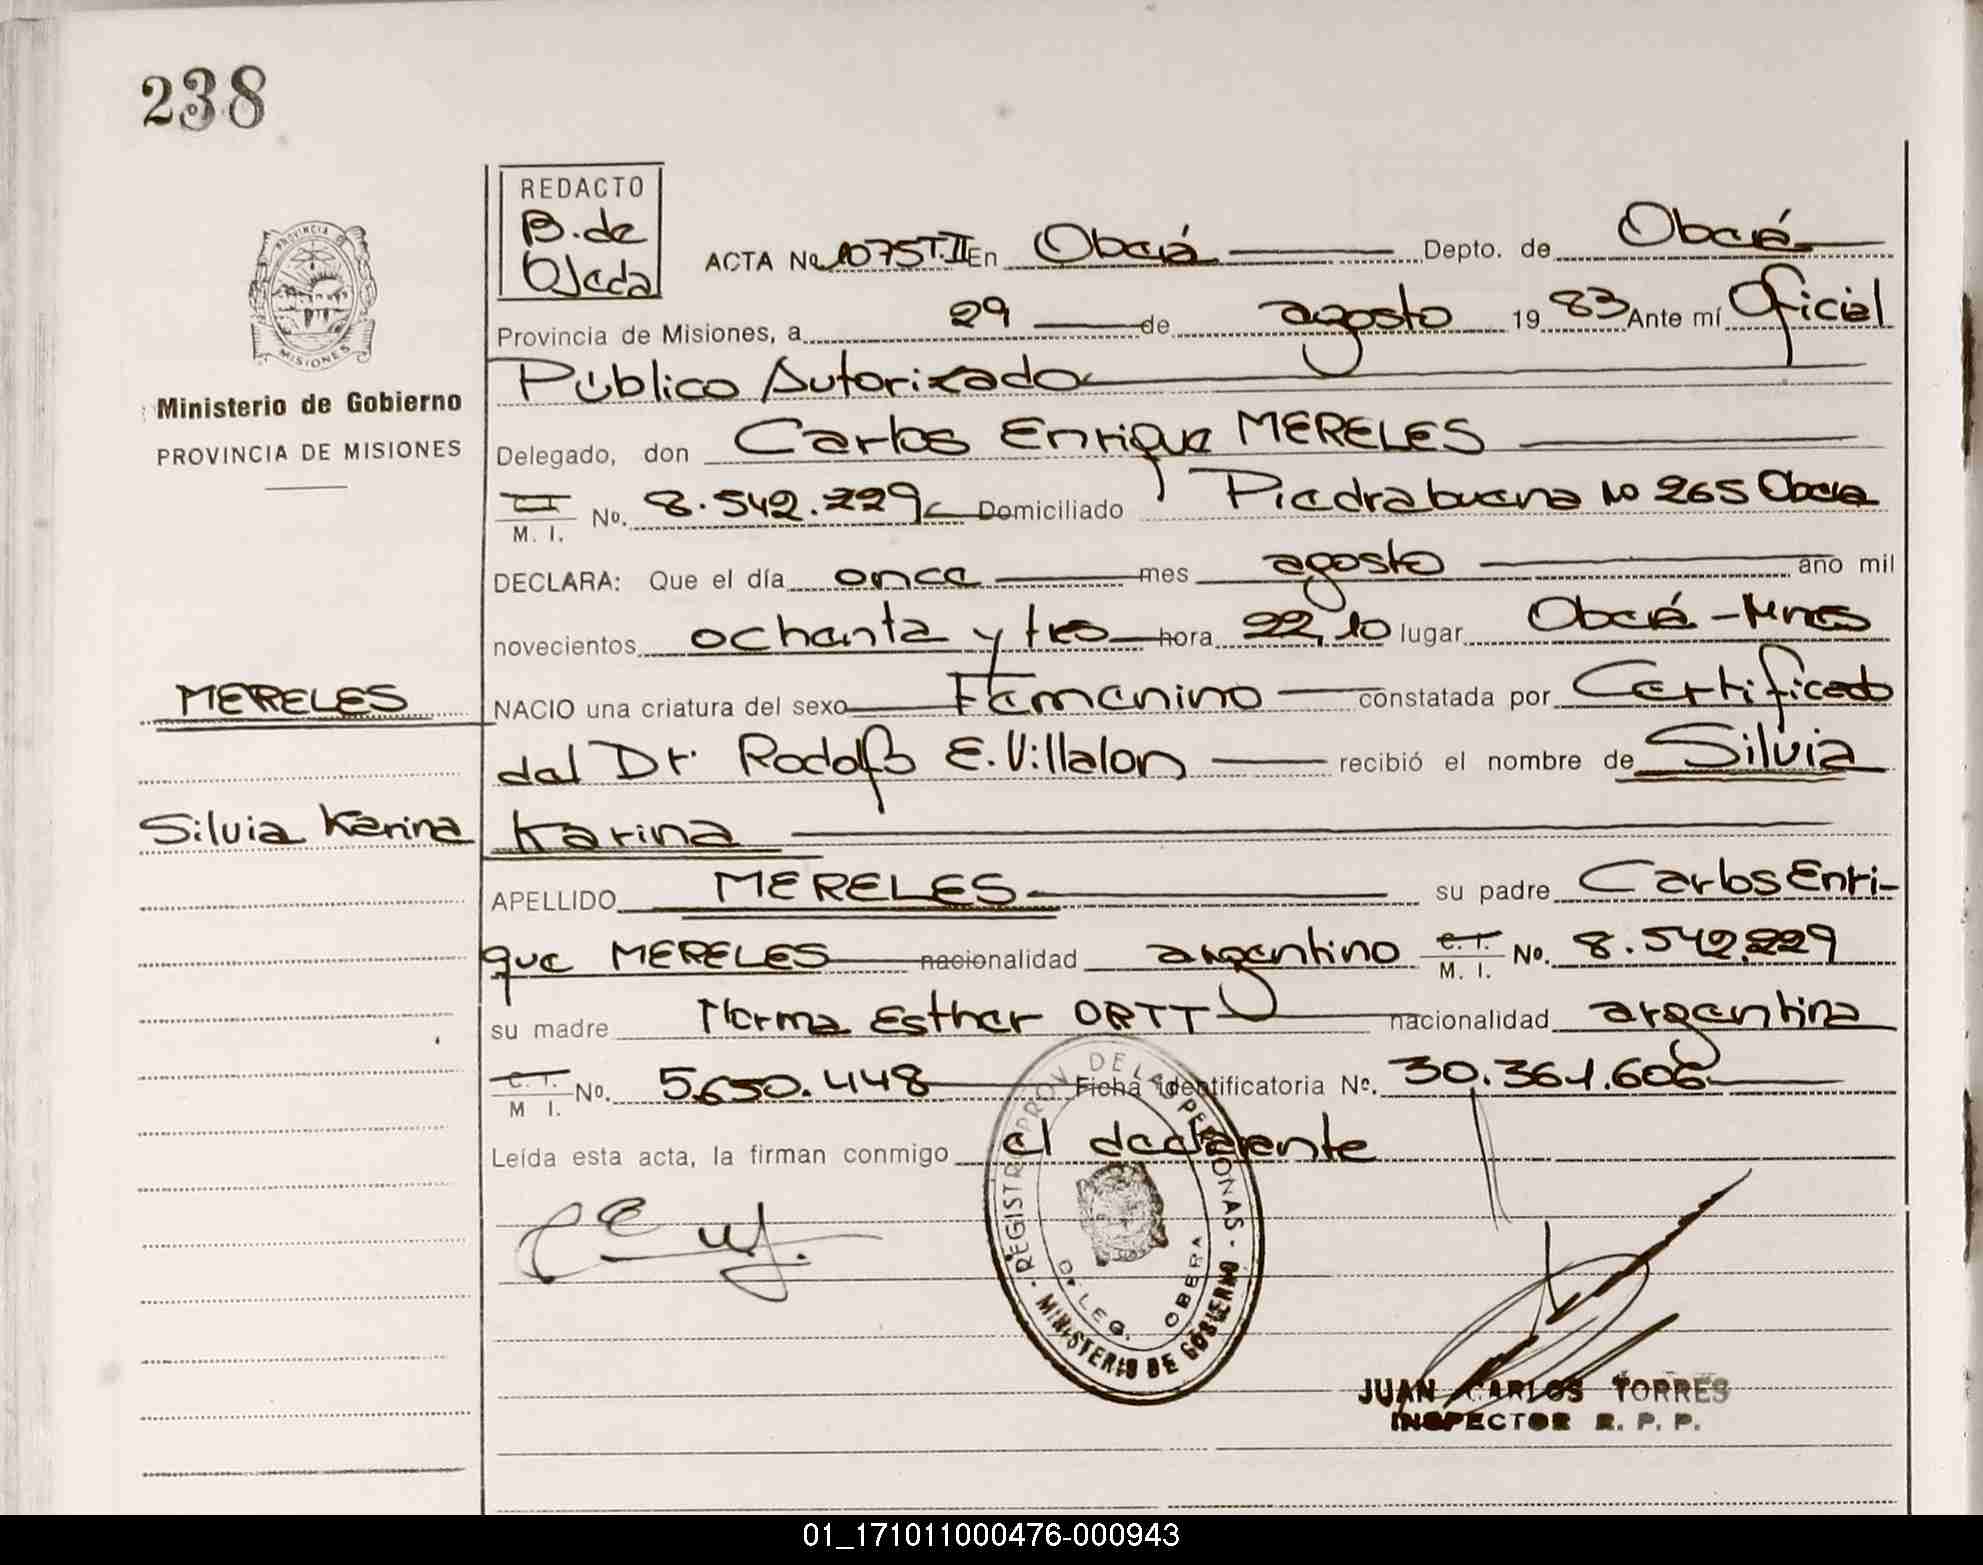 238
REDACTO
B. de
Ojeda
PROVINCIA DE
MISIONES
Ministerio de Gobierno
PROVINCIA DE MISIONES
ACTA No 1075 T.II En Oberá Depto. de Oberá
Provincia de Misiones, a 29 de agosto 19 83 Ante mí Oficial
Público Autorizado
Delegado, don Carlos Enrique MERELES
C.I. M. I. No. 8.542.229 Domiciliado Piedrabuena No 265 Oberá
DECLARA: Que el día once mes agosto año mil
novecientos ochenta y tres hora 22,10 lugar Oberá - Mnes
MERELES
NACIO una criatura del sexo Femenino constatada por Certificado
del Dr. Rodolfo E. Villalon recibió el nombre de Silvia
Silvia Karina
Karina
APELLIDO MERELES su padre Carlos Enri-
que MERELES nacionalidad argentino C.I. M. I. No. 8.542.229
su madre Norma Esther ORTT nacionalidad argentina
C.I. M I. No. 5.650.448 Ficha identificatoria No. 30.361.606
Leída esta acta, la firman conmigo el declarente
REGISTRO PROV. DE LAS PERSONAS
DELEG. OBERA
MINISTERIO DE GOBIERNO
JUAN CARLOS TORRES
INSPECTOR R. P. P.
01_171011000476-000943